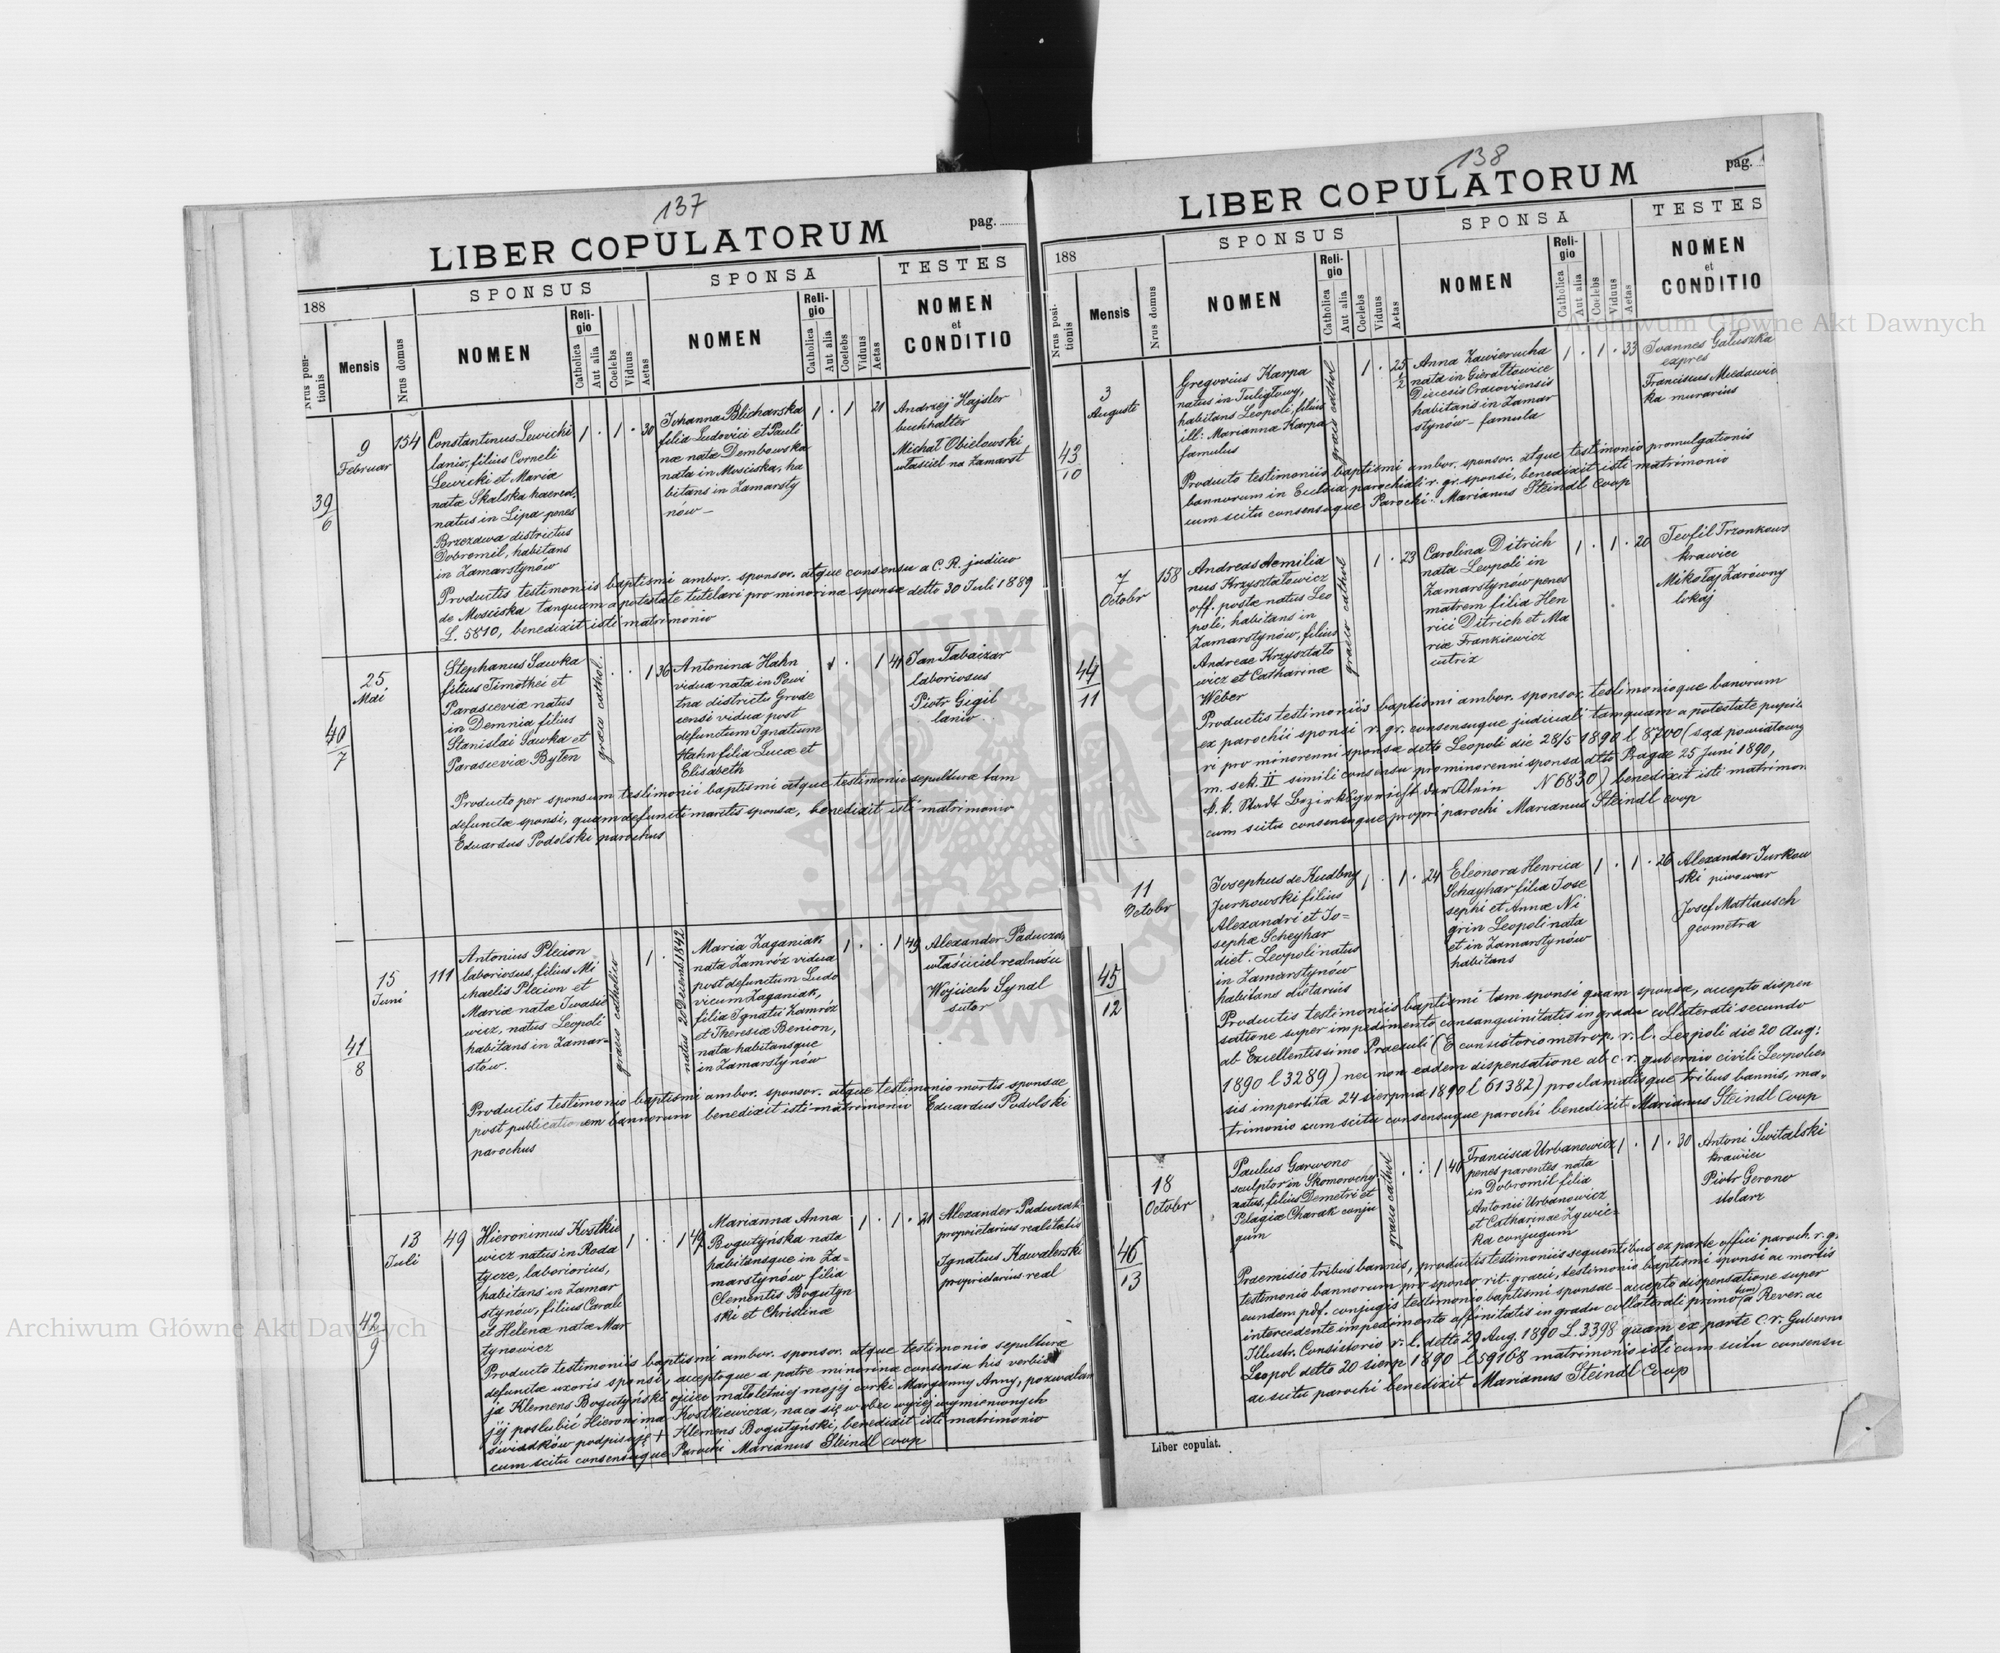 137
LIBER COPULATORUM
pag.
188
SPONSUS
SPONSA
TESTES
Nrus positionis
Mensis
Nrus domus
NOMEN
Religio
Catholica
Aut alia
Coelebs
Viduus
Aetas
NOMEN
Religio
Catholica
Aut alia
Coelebs
Viduus
Aetas
NOMEN
et
CONDITIO
39/6
9
Februar
154
Constantinus Lewicki
lanio, filius Corneli
Lewicki et Mariæ
natæ Skalska haered.
natus in Lipa penes
Brzezawa districtus
Dobromil, habitans
in Zamarstynów
1 . 1 . 30
Johanna Blicharska
filia Ludovici et Pauli
næ natæ Dembowska
nata in Mosciska, ha
bitans in Zamarsty
nów
1 . 1 21
Andrzej Hajsler
buchhalter
Michał Obielowski
właściel na Zamarst
Productis testimoniis baptismi ambor. sponsor. atque consensu a C. R. judicio
de Mosciska tanquam a potestate tutelari pro minorina sponsa detto 30 Juli 1889
L. 5810, benedixit isti matrimonio
40/7
25
Mai
Stephanus Sawka
filius Timothei et
Parasceviæ natus
in Demnia filius
Stanislai Sawka et
Parasceviæ Byten
graeco cathol.
. . 1 36
Antonina Hahn
vidua nata in
districtu Grode
censi vidua post
defunctum Ignatium
Hahn filia Lucæ et
Elisabeth
1 . 1 41
Jan Tabaczar
laboriosus
Piotr Gigil
lanio
Producto per sponsum testimonii baptismi atque testimonio sepulturæ tam
defunctæ sponsi, quam defuncti maritis sponsæ, benedixit isti matrimonio
Eduardus Podolski parochus
41/8
15
Juni
111
Antonius Plecion
laboriosus, filius Mi
chaelis Plecion et
Mariæ natæ Iwasie
wicz, natus Leopoli
habitans in Zamar=
stów.
graeco catholico
1 .
natus 20 Decemb 1842
Maria Zaganiak
nata Zamróz vidua
post defunctum Ludo
vicum Zaganiak,
filia Ignatii Zamróz
et Theresiæ Benion,
nata habitansque
in Zamarstynów
1 . . 1 49
Alexander Paduczak
właściciel realności
Wojciech Syndl
sutor
Productis testimonio baptismi ambor. sponsor. atque testimonio mortis sponsae
post publicationem bannorum benedixit isti matrimonio Eduardus Podolski
parochus
42/9
13
Juli
49
Hieronimus Kostkie
wicz natus in Roda
tycze, laboriorius,
habitans in Zamar
stynów, filius Caroli
et Helenæ natæ Mar
tynowicz
1 . . 1 49
Marianna Anna
Bogutyńska nata
habitansque in Za=
marstynów filia
Clementis Bogutyn
ski et Christinæ
1 . 1 . 21
Alexander Paduczak
proprietarius realitatis
Ignatius Kawalerski
proprietarius real
Producto testimoniis baptismi ambor. sponsor. atque testimonio sepulturæ
defunctæ uxoris sponsi, acceptoque a patre minorinæ consensu his verbis
ja Klemens Bogutyński ojciec małoletniej mojej corki Maryanny Anny, pozwalam
jéj poslubić Hieronima Kostkiewicza, na co się w obec wyżej wymienionych
świadków podpisuję + Klemens Bogutyński, benedixit isti matrimonio
cum scitu consensuque Parochi Marianus Steindl coop
138
LIBER COPULATORUM
pag.
188
SPONSUS
SPONSA
TESTES
Nrus positionis
Mensis
Nrus domus
NOMEN
Religio
Catholica
Aut alia
Coelebs
Viduus
Aetas
NOMEN
Religio
Catholica
Aut alia
Coelebs
Viduus
Aetas
NOMEN
et
CONDITIO
43/10
3
Augusti
Gregorius Karpa
natus in Tuligłowy,
habitans Leopoli, filius
ill: Marianna Karpa
famulus
graeco cathol
1 . 25 1/2
Anna Zawierucha
nata in Gierałtowice
Diecesis Cracoviensis
habitans in Zamar
stynów - famula
1 . 1 . 33
Joannes Gałuszka
expres
Franciscus Miedawic
ka murarius
Producto testimoniis baptismi ambor. sponsor. atque testimonio promulgationis
bannorum in Ecclesia parochiali r. gr. sponsi, benedixit isti matrimonio
cum scitu consensuque Parochi. Marianus Steindl Coop
44/11
7
Octobr
158
Andreas Aemilia
nus Krzysztalowicz
off. postæ natus Leo
poli, habitans in
Zamarstynów, filius
Andreae Krzysztalo
wicz et Catharinæ
Weber
graeco cathol
1 . 23
Carolina Ditrich
nata Leopoli in
Zamarstynów penes
matrem filia Hen
rici Ditrich et Ma
riæ Frankiewicz
1 . 1 . 20
Teofil Trzonkows
krawiec
Mikołaj Zarówny
lokaj
Productis testimoniis baptismi ambor. sponsor, testimonioque banorum
ex parochii sponsi r. gr. consensuque judiciali tamquam a potestate pupila
ri pro minorenni sponsa detto Leopoli die 28/5 1890 l 8700 (sąd powiatowy
m. sek. II simili consensu pro minorenni sponsa dtto Pragae 25 Juni 1890,
k. k. Stadt Bezirksgericht N 6830) benedixit isti matrimon
cum scitu consensuque propri parochi Marianus Steindl coop
45/12
11
Octobr
Josephus de Kudbny
Jurkowski filius
Alexandri et Jo=
sephæ Scheyhar
diet. Leopoli natus
in Zamarstynów
habitans dietarius
1 . 1 . 24
Eleonora Henrica
Schayhar filia Jose
sephi et Annæ Ni
grin Leopoli nata
et in Zamarstynów
habitans
1 . 1 . 26
Alexander Jurkow
ski piwowar
Josef Mattausch
geometra
Productis testimoniis baptismi tam sponsi quam sponsæ, accepto dispen
satione super impedimento consanguinitatis in gradu collaterati secundo
ab Excellentissimo Praesuli (E consistorio metrop. r. l. Leopoli die 20 Aug:
1890 l 3289) nec non eadem dispensatione ab c. r. gubernio civili Leopolien
sis impertita 24 sierpnia 1890 l 61382) proclamatisque tribus bannis, ma-
trimonio cum scitu consensuque parochi benedixit Marianus Steindl Coop
46/13
18
Octobr
Paulus Garwono
sculptor in Skomorochy
natus, filius Demetri et
Pelagiæ Charak conju
gum
graeco cathol
. : 1 40
Francisca Urbanowicz
penes parentes nata
in Dobromil filia
Antonii Urbanowicz
et Catharinae Zywic=
ka conjugum
1 . 1 . 30
Antoni Switalski
krawiec
Piotr Gerono
stolarz
Praemisio tribus bannis, productis testimoniis sequentibus, ex parte offici paroch. r. gr
testimonio bannorum pro sponso rit. graeci, testimonio baptismi sponsi ac mortis
eundem pdf. conjugis testimonio baptismi sponsae - accepto dispensatione super
intercedente impedimento affinitatis in gradu collaterali primo tam a Rever. ac
Illustr. Consistorio r. l. detto 29 Aug. 1890 L. 3398 quam ex parte c. r. Guberni
Leopol detto 20 sierp 1890 l 59168 matrimonio isti cum scitu consensu
ac scitu parochi benedixit Marianus Steindl Coop
Liber copulat.
Archiwum Główne Akt Dawnych
Archiwum Główne Akt Dawnych